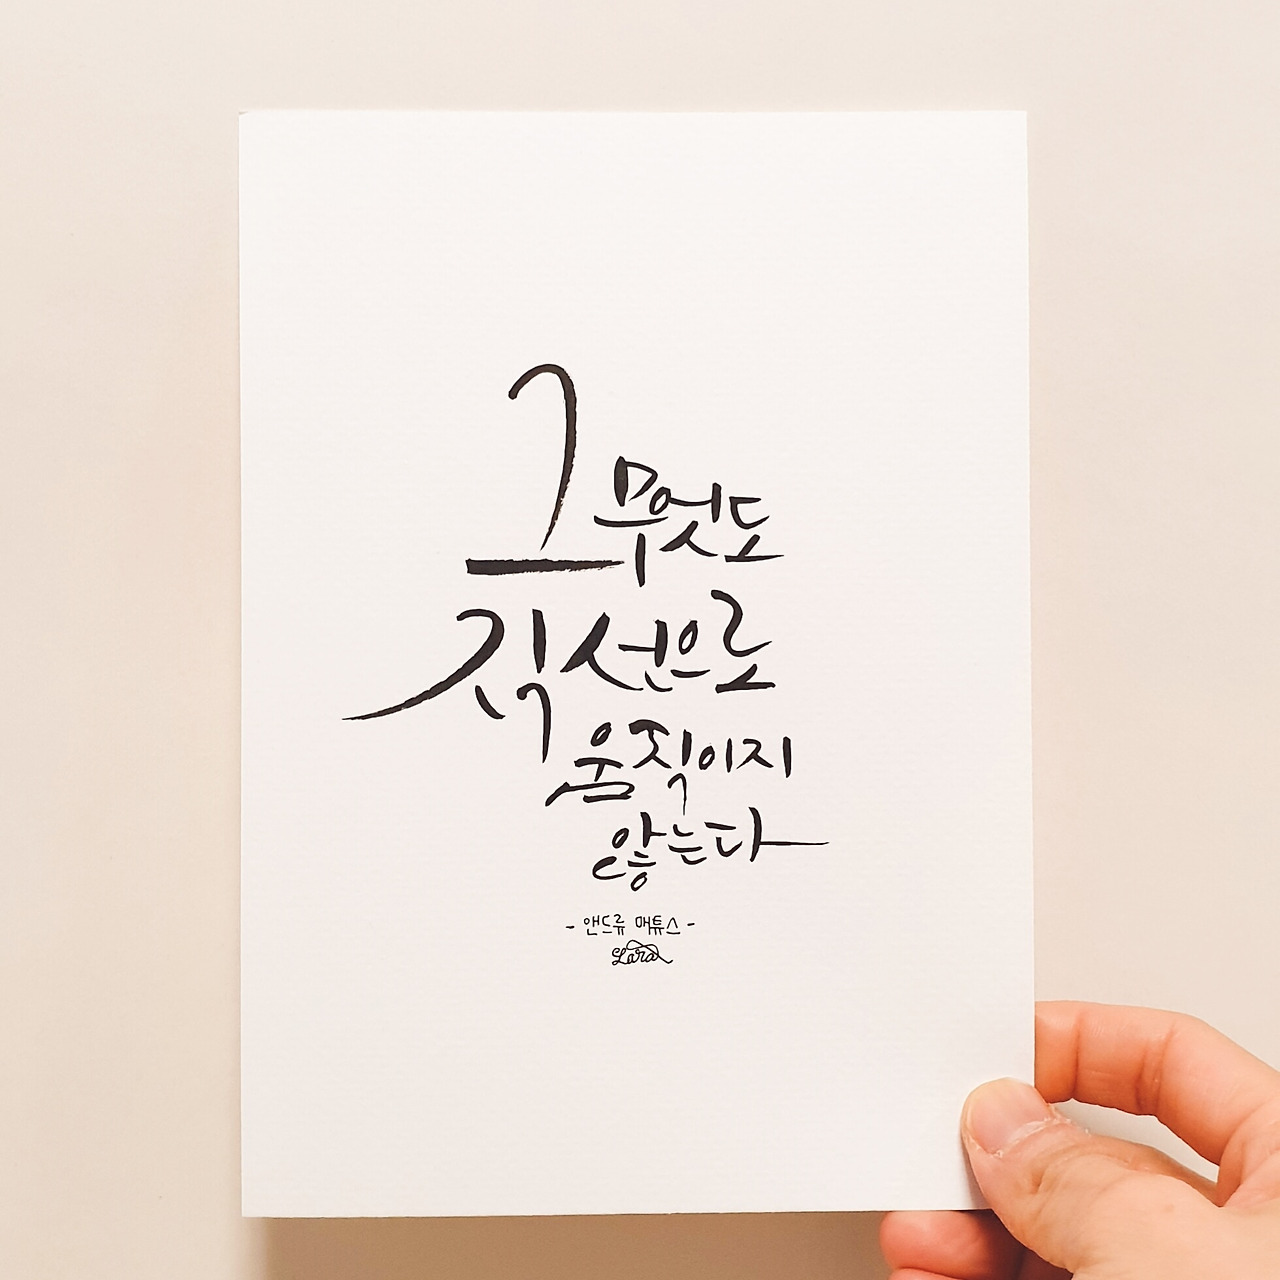 그 무엇도
직선으로
움직이지
않는다
- 앤드류 매튜스 -
Lara